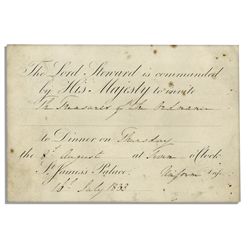 The Lord Steward is commanded
by His Majesty to invite
The Treasurer of the Ordnance
to Dinner on Thursday
the August at Seven o'Clock
St. James's Palace. Uniform
July 1833